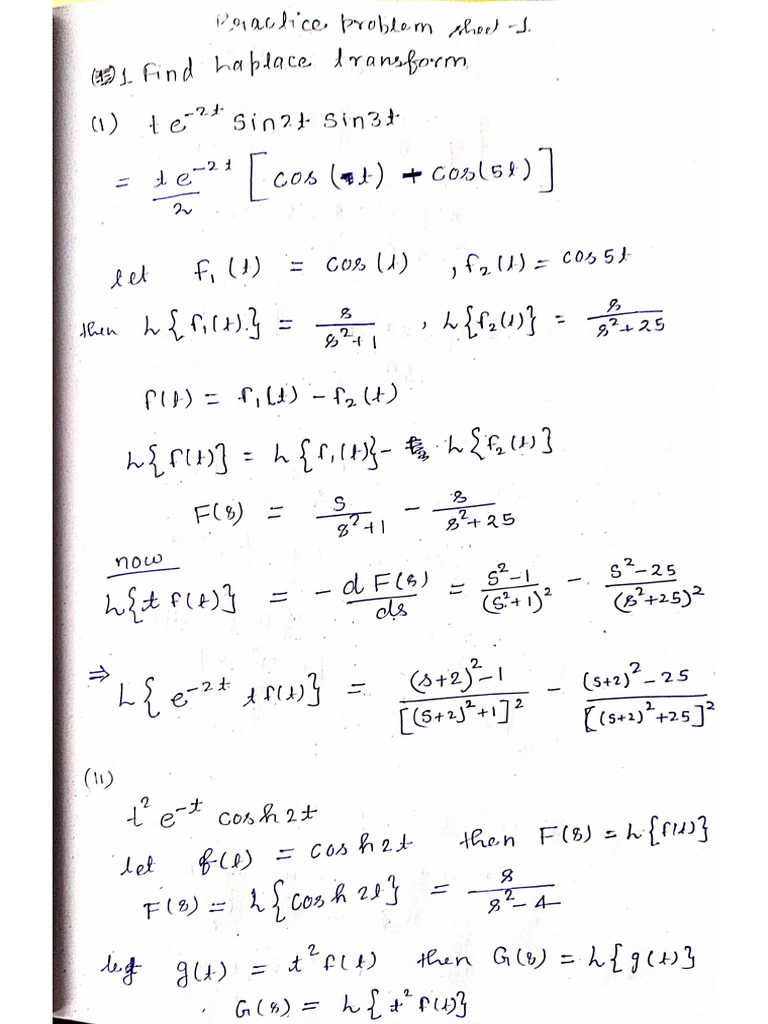 Practice problem sheet -1.
1. Find Laplace transform
(1) t e^{-2t} sin2t sin3t
= \frac{t e^{-2t}}{2} [cos(t) + cos(5t)]
let f₁(t) = cos(t) , f₂(t) = cos5t
then L{f₁(t).} = \frac{s}{s²+1} , L{f₂(t)} = \frac{s}{s²+25}
f(t) = f₁(t) - f₂(t)
L{f(t)} = L{f₁(t)} - L{f₂(t)}
F(s) = \frac{s}{s²+1} - \frac{s}{s²+25}
now
L{t f(t)} = \frac{-d F(s)}{ds} = \frac{s²-1}{(s²+1)²} - \frac{s²-25}{(s²+25)²}
⇒ L{e^{-2t} t f(t)} = \frac{(s+2)²-1}{[(s+2)²+1]²} - \frac{(s+2)²-25}{[(s+2)²+25]²}
(11)
t² e^{-t} cosh2t
let f(t) = cosh2t then F(s) = L{f(t)}
F(s) = L{cosh 2t} = \frac{s}{s²-4}
let g(t) = t² f(t) then G(s) = L{g(t)}
G(s) = L{t² f(t)}